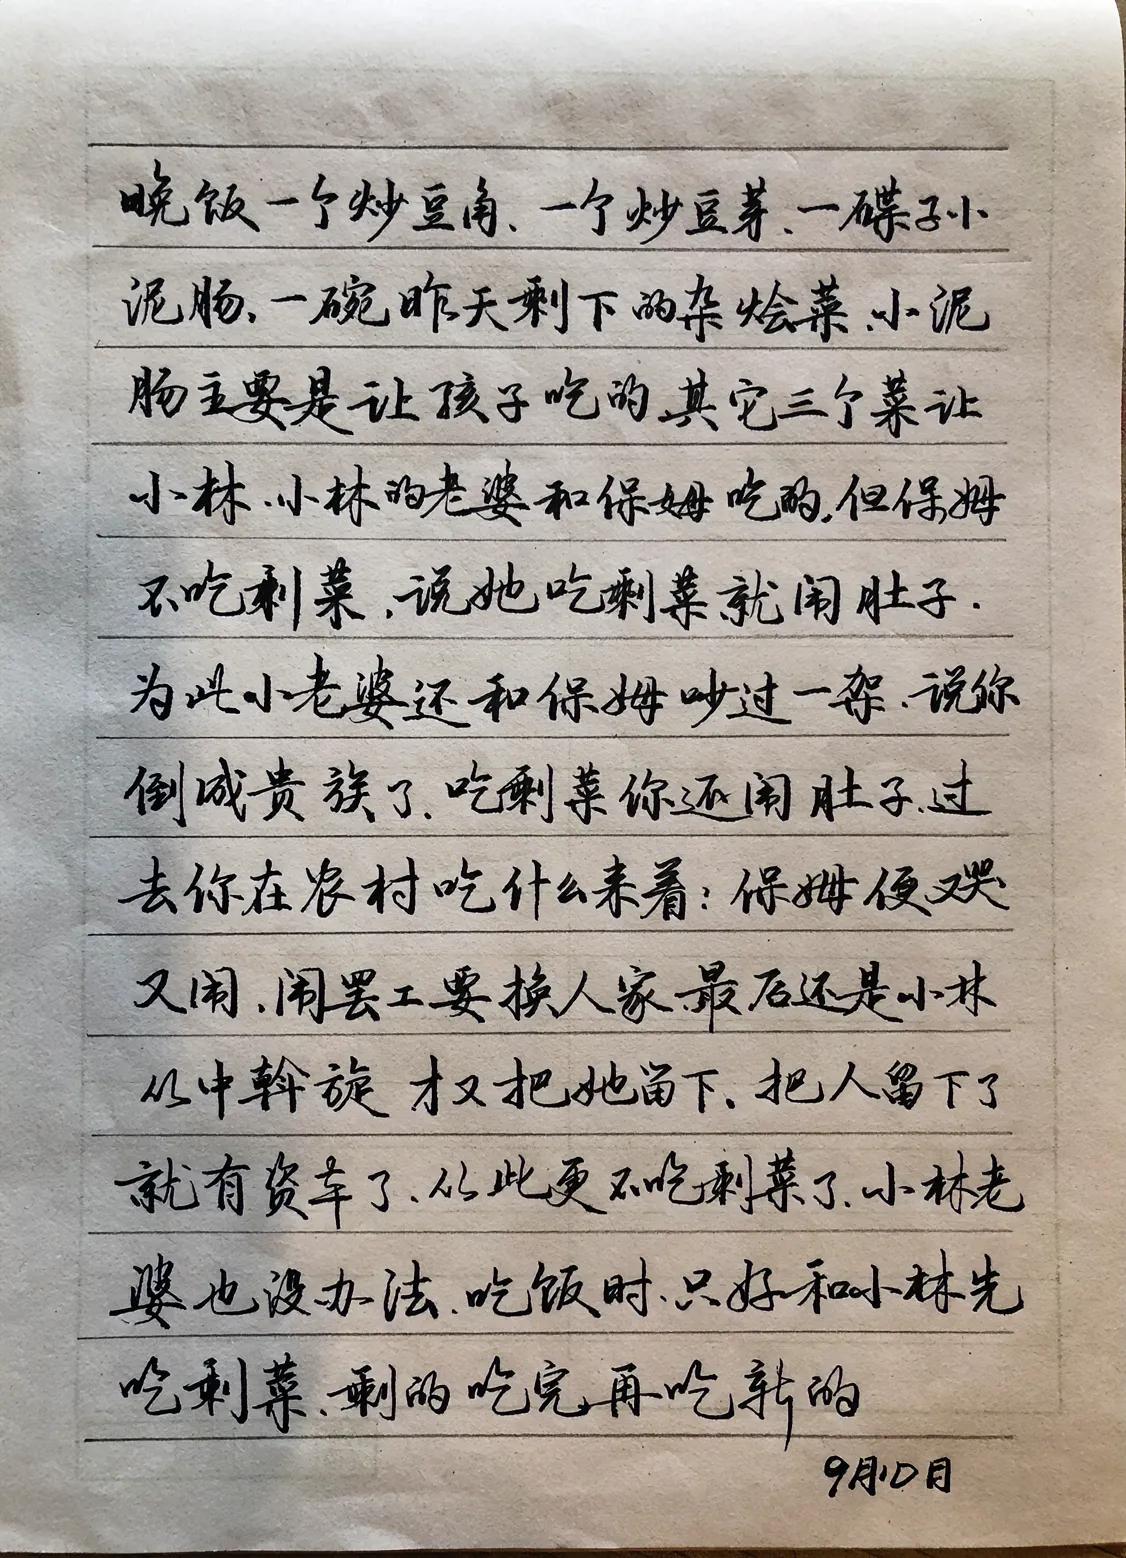 晚饭一个炒豆角、一个炒豆芽、一碟子小
泥肠、一碗昨天剩下的杂烩菜、小泥
肠主要是让孩子吃的 其它三个菜让
小林、小林的老婆和保姆吃的,但保姆
不吃剩菜,说她吃剩菜就闹肚子.
为此小老婆还和保姆吵过一架、说你
倒成贵族了、吃剩菜你还闹肚子、过
去你在农村吃什么来着:保姆便又哭
又闹、闹罢工要换人家、最后还是小林
从中斡旋 才又把她留下、把人留下了
就有资车了、从此更不吃剩菜了、小林老
婆也没办法、吃饭时、只好和小林先
吃剩菜、剩的吃完再吃新的
9月10日